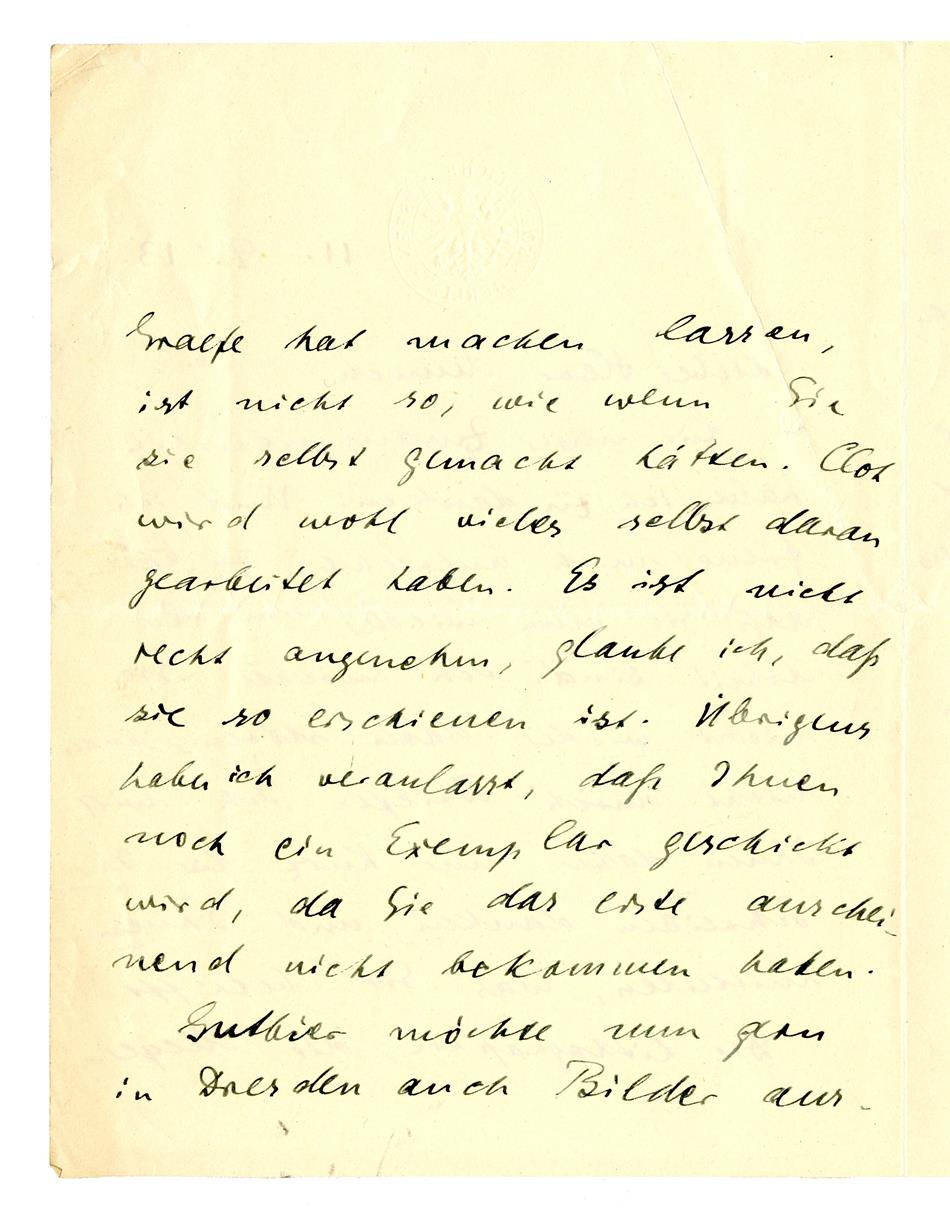 Graefe hat machen lassen,
ist nicht so, wie wenn Sie
sie selbst gemacht hätten. Clot
wird wohl vieles selbst daran
gearbeitet haben. Es ist nicht
recht angenehm, glaube ich, daß
sie so erschienen ist. Übrigens
habe ich veranlasst, daß Ihnen
noch ein Exemplar geschickt
wird, da Sie das erste anschei-
nend nicht bekommen haben.
Gutbier möchte nun gern
in Dresden auch Bilder aus-